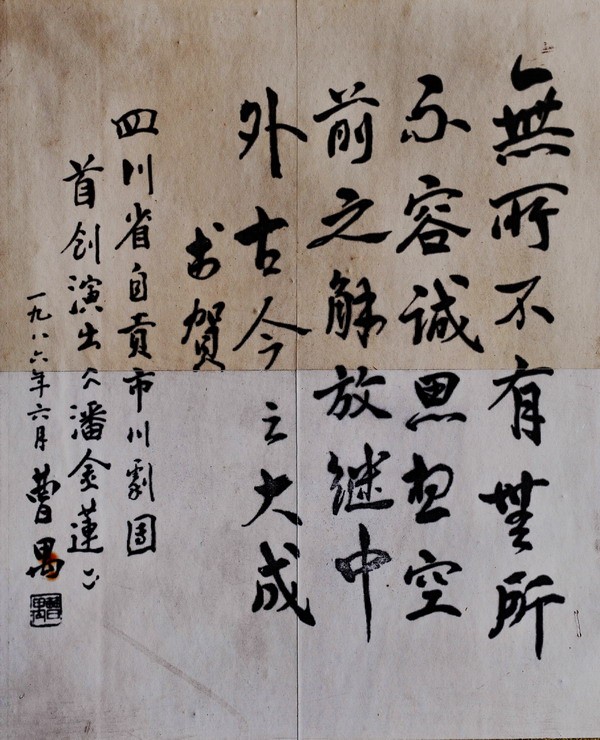 無所不有無所
不容誠思想空
前之解放继中
外古今之大成
书贺
四川省自贡市川剧团
首创演出《潘金莲》
一九八六年六月 曹禺
曹禺